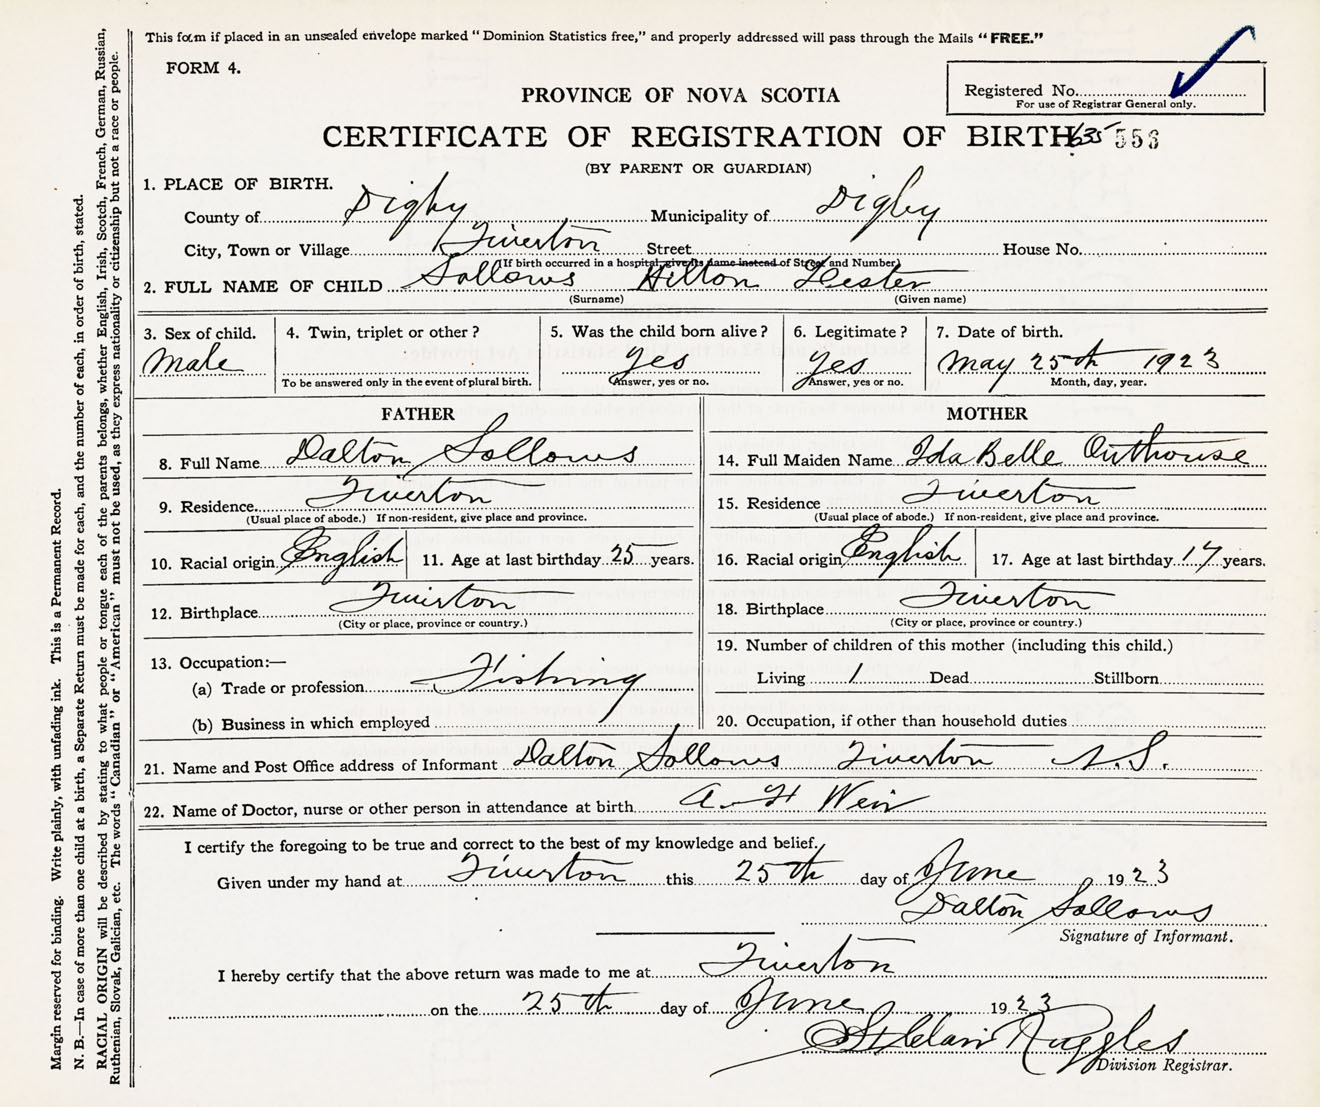 This form if placed in an unsealed envelope marked "Dominion Statistics free," and properly addressed will pass through the Mails "FREE."
FORM 4.
Registered No.
For use of Registrar General only.
PROVINCE OF NOVA SCOTIA
CERTIFICATE OF REGISTRATION OF BIRTH 556
(BY PARENT OR GUARDIAN)
1. PLACE OF BIRTH.
County of Digby Municipality of Digby
City, Town or Village Tiverton Street House No.
(If birth occurred in a hospital, give its name instead of Street and Number)
2. FULL NAME OF CHILD Sollows Hilton Lester
(Surname) (Given name)
3. Sex of child. 4. Twin, triplet or other? 5. Was the child born alive? 6. Legitimate? 7. Date of birth.
Male Yes Yes May 25th 1923
To be answered only in the event of plural birth. Answer, yes or no. Answer, yes or no. Month, day, year.
FATHER
8. Full Name Dalton Sollows
9. Residence Tiverton
(Usual place of abode.) If non-resident, give place and province.
10. Racial origin English 11. Age at last birthday 25 years.
12. Birthplace Tiverton
(City or place, province or country.)
13. Occupation:—
(a) Trade or profession Fishing
(b) Business in which employed
MOTHER
14. Full Maiden Name Ida Belle Outhouse
15. Residence Tiverton
(Usual place of abode.) If non-resident, give place and province.
16. Racial origin English 17. Age at last birthday 17 years.
18. Birthplace Tiverton
(City or place, province or country.)
19. Number of children of this mother (including this child.)
Living 1 Dead Stillborn
20. Occupation, if other than household duties
21. Name and Post Office address of Informant Dalton Sollows Tiverton N.S.
22. Name of Doctor, nurse or other person in attendance at birth A. H Weir
I certify the foregoing to be true and correct to the best of my knowledge and belief.
Given under my hand at Tiverton this 25th day of June 1923
Dalton Sollows
Signature of Informant.
I hereby certify that the above return was made to me at Tiverton
on the 25th day of June 1923
St Clair Ruggles
Division Registrar.
Margin reserved for binding. Write plainly, with unfading ink. This is a Permanent Record.
N. B.—In case of more than one child at a birth, a Separate Return must be made for each, and the number of each, in order of birth, stated.
RACIAL ORIGIN will be described by stating to what people or tongue each of the parents belongs, whether English, Irish, Scotch, French, German, Russian,
Ruthenian, Slovak, Galician, etc. The words "Canadian" or "American" must not be used, as they express nationality or citizenship but not a race or people.